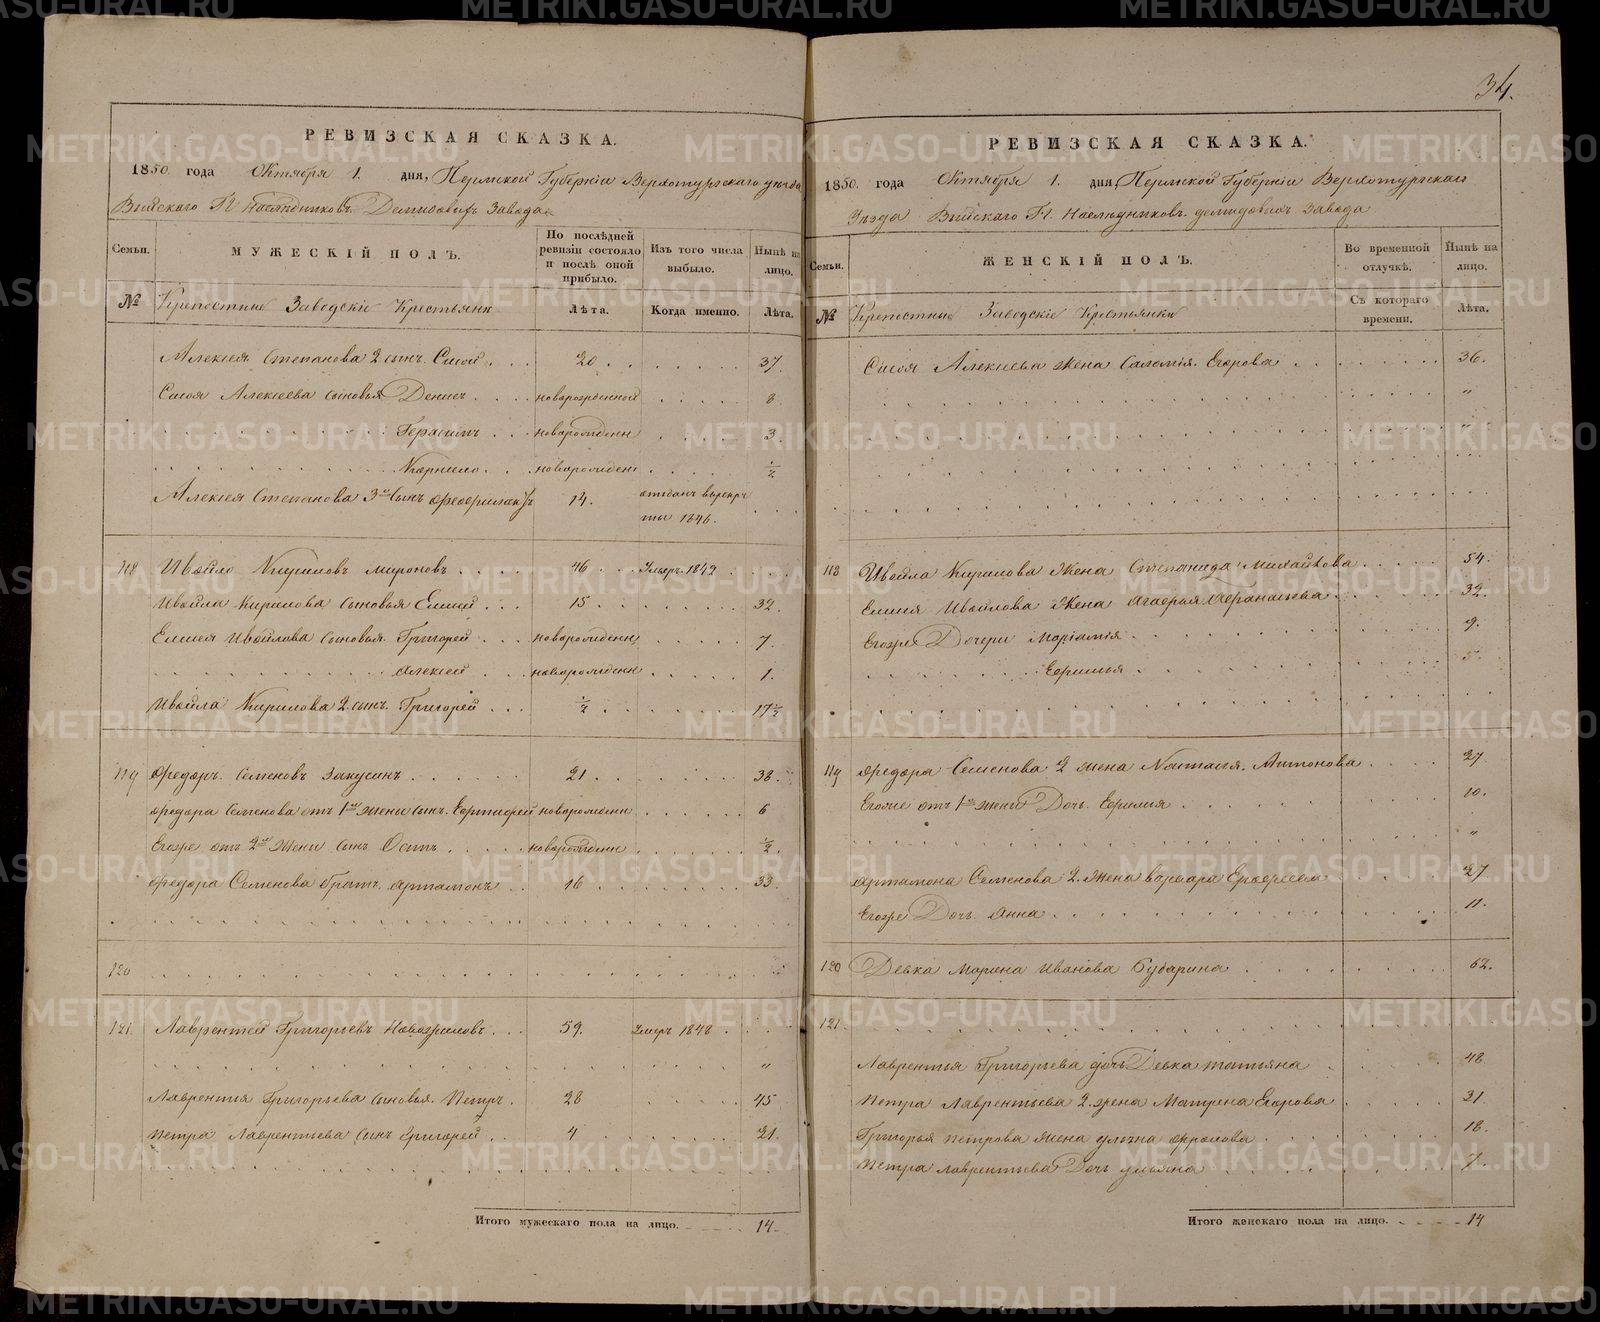 34.
РЕВИЗСКАЯ СКАЗКА.
1850. года Октября 1. дня, Пермской Губерніи Верхотурскаго уѣзда
Выйскаго Гг. Наслѣдниковъ Демидовыхъ Завода
Семьи.
МУЖЕСКІЙ ПОЛЪ.
По послѣдней ревизіи состояло и послѣ оной прибыло.
Изъ того числа выбыло.
Нынѣ на лицо.
№
Крепостные Заводскіе Крестьяне
Лѣта.
Когда именно.
Лѣта.
Алексея Степанова 2 сынъ Сысой 20 37
Сысоя Алексеева сыновья Денисъ новорожденной 8
Герасимъ новорожденн 3.
Корнило новорожден ½
Алексея Степанова 3й Сынъ 14. отданъ в рекру
ты 1846.
118 Ивойло Кириловъ Мироновъ 46 Умеръ 1849
Ивойла Кирилова сыновья Елисей 15 32
Елисея Ивойлова сыновья Григорей новорожденн 7.
Алексей новорожденн 1.
Ивойла Кирилова 2 сынъ Григорей ½ 17½
119 Федоръ Семеновъ Закусинъ 21 38.
Федора Семенова отъ 1й жены сынъ новорожденн 6
Егоже отъ 2й жены сынъ Осипъ новорожденн ½
Федора Семенова братъ Артамонъ 16 33
120
121. Лаврентей Григорьевъ 59. Умеръ 1848
"
Лаврентия Григорьева сыновья Петръ 28 45
Петра Лаврентьева сынъ Григорей 4 21.
Итого мужескаго пола на лицо. 14.
РЕВИЗСКАЯ СКАЗКА.
1850. года Октября 1. дня, Пермской Губерніи Верхотурскаго
Уѣзда Выйскаго Гг. Наслѣдниковъ Демидовыхъ Завода
Семьи.
ЖЕНСКІЙ ПОЛЪ.
Во временной отлучкѣ.
Нынѣ на лицо.
№
Крепостные Заводскіе Крестьянки
Съ котораго времени.
Лѣта.
Сысоя Алексеева жена Саломія Егорова 36.
"
"
118 Ивойла Кирилова Жена Степанида Михайлова 54.
Елисея Ивойлова Жена Агафья Афанасьева 32.
Егоже Дочери Маріамія 9.
5
119 Федора Семенова 2 жена Наталья Антонова 27
Егоже отъ 1й жены Дочь 10.
"
Артамона Семенова 2. жена Варвара 27
Егоже Дочь Анна 11.
120 Девка Марина Иванова Бударина 62.
121.
Лаврентья Григорьева дочь Девка Татьяна 48
Петра Лаврентьева 2. жена Матрена Егорова 31.
Григорья Петрова жена 18.
Петра Лаврентьева Дочь Ульяна 7.
Итого женскаго пола на лицо. 14
METRIKI.GASO-URAL.RU